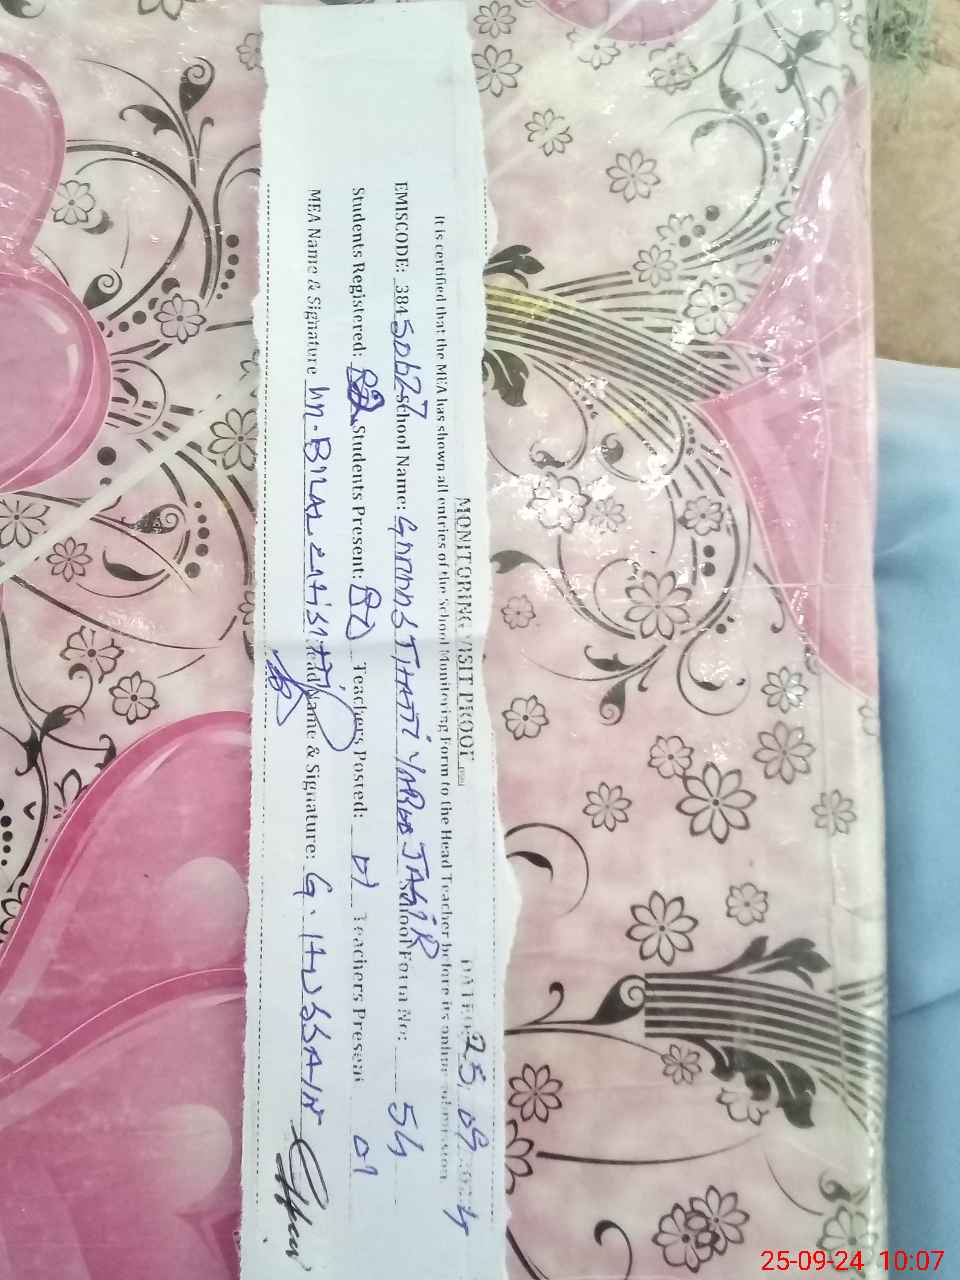 MONITORING VISIT PROOF DATED: 25, 09, 2024
It is certified that the MEA has shown all entries of the School Monitoring Form to the Head Teacher before its online submission
EMISCODE: 38450627 School Name: THATTI YAROO JAGIR School Form No: 54
Students Registered: Students Present: 80 Teachers Posted: 01 Teachers Present 01
MEA Name & Signature M. BILAL Head Name & Signature: G. HUSSAIN
25-09-24 10:07